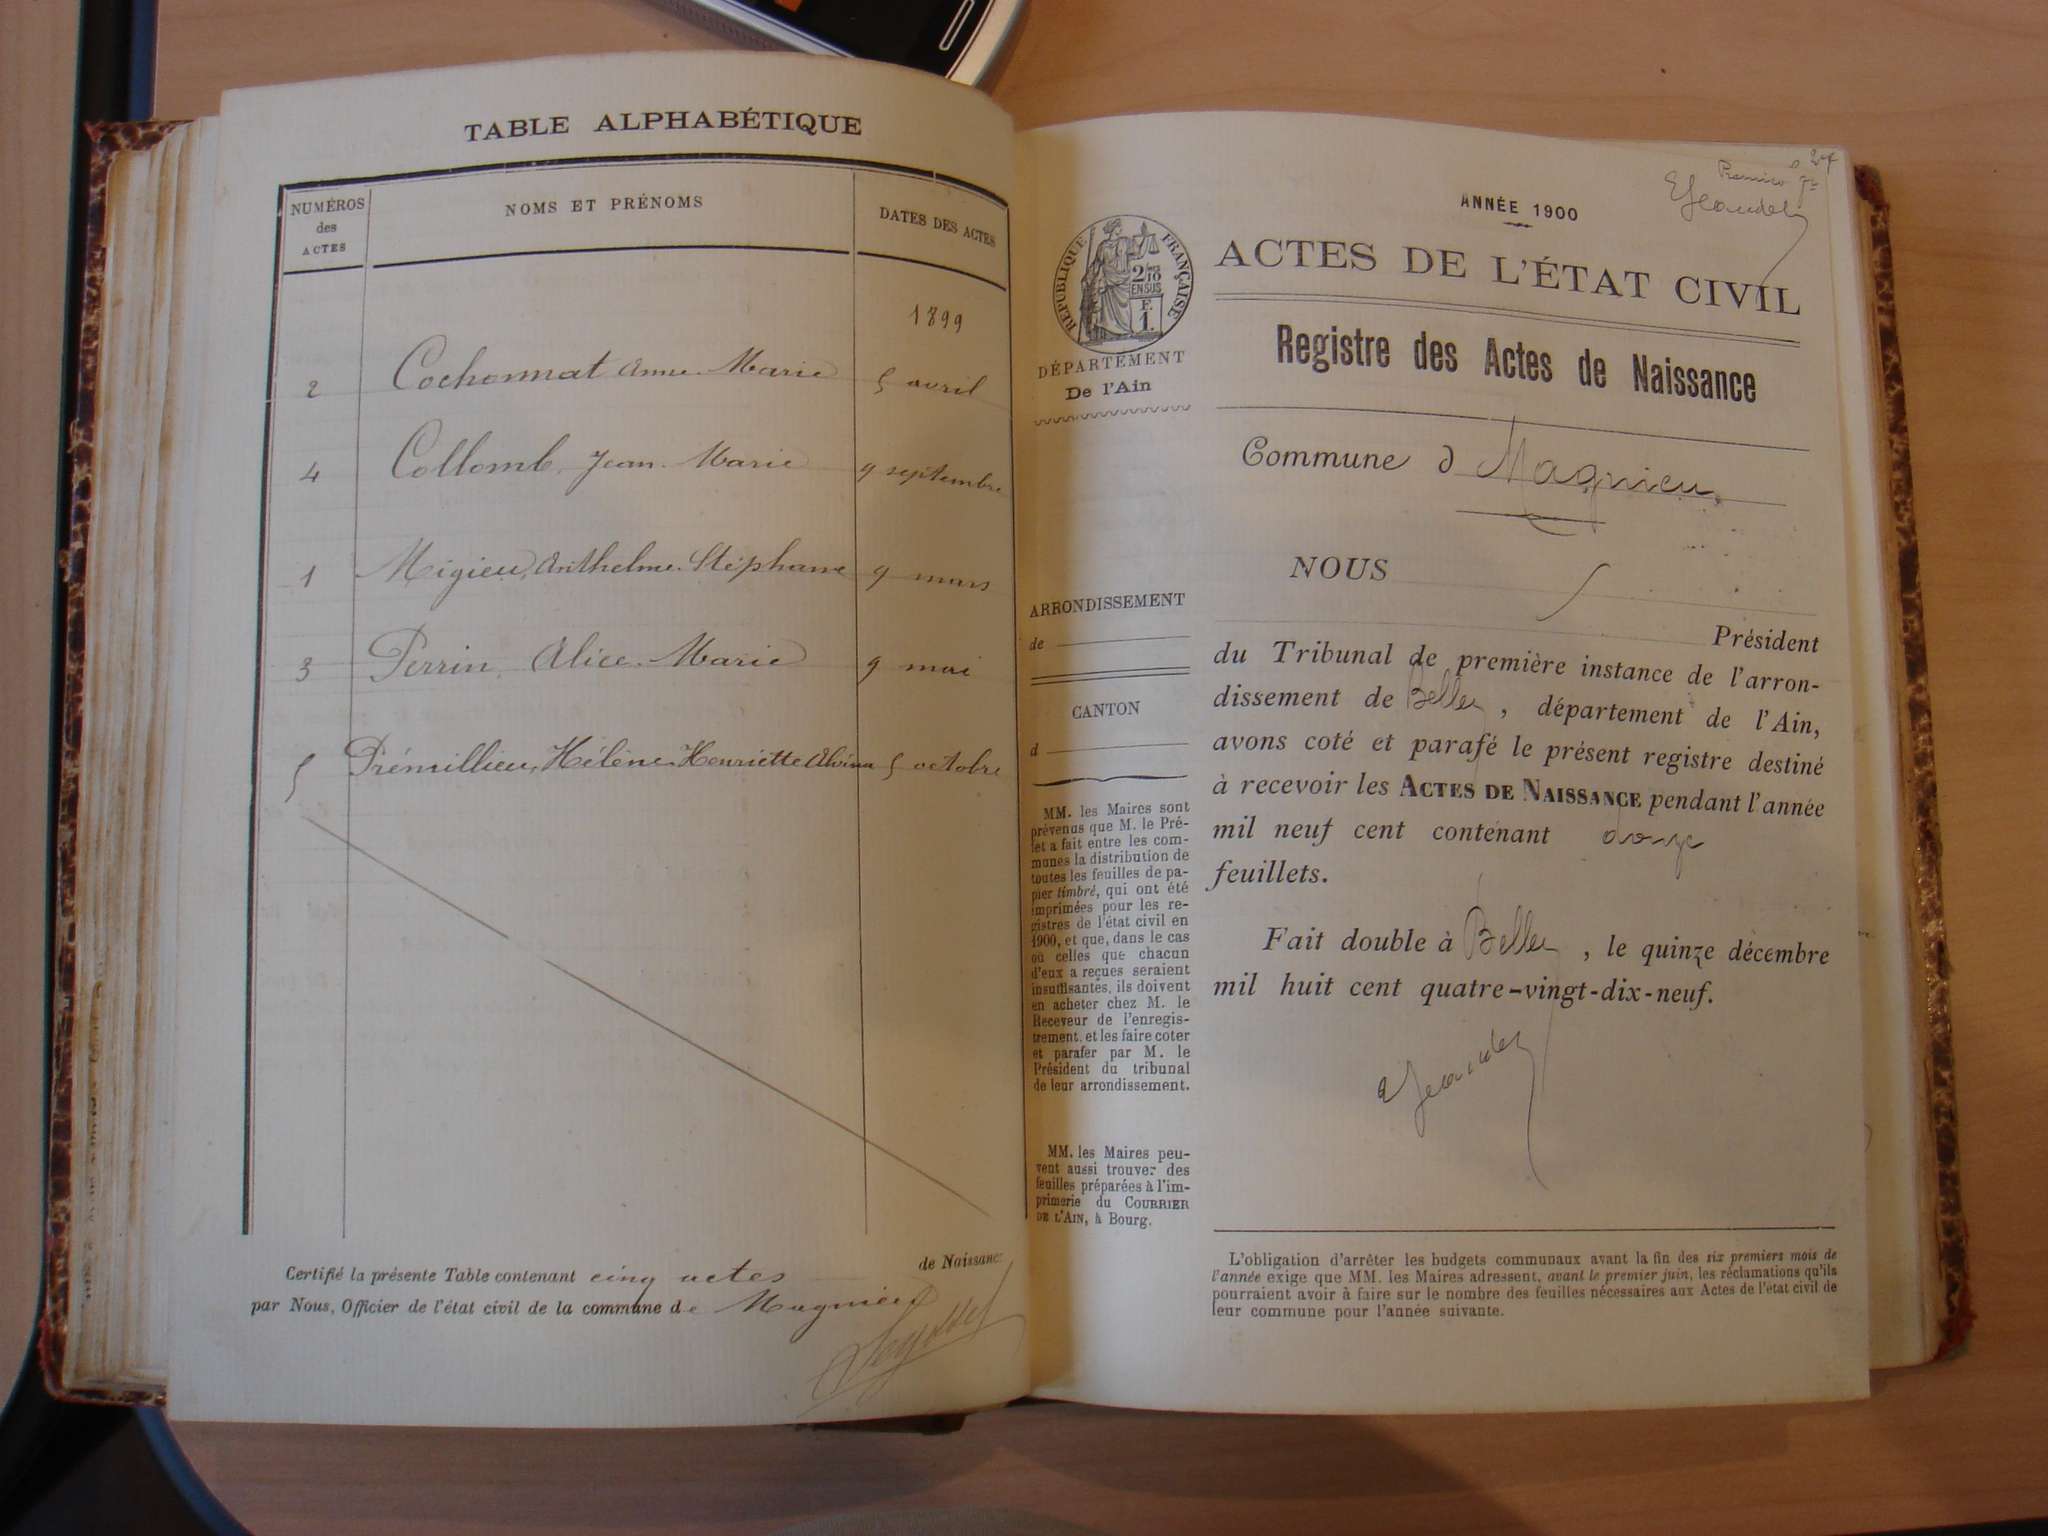 TABLE ALPHABÉTIQUE
NUMÉROS
des
ACTES
NOMS ET PRÉNOMS
DATES DES ACTES
1899
2 Cochonnat Anne Marie 5 avril
4 Collomb, Jean Marie 9 septembre
1 Migieu, Anthelme Stéphane 9 mars
3 Perrin, Alice Marie 9 mai
5 Prémillieu, Hélène Henriette Alvina 5 octobre
Certifié la présente Table contenant cinq actes de Naissance
par Nous, Officier de l'état civil de la commune de Magnieu
ANNÉE 1900
ACTES DE L'ÉTAT CIVIL
RÉPUBLIQUE FRANÇAISE
DÉPARTEMENT
De l'Ain
Registre des Actes de Naissance
Commune d Magnieu
NOUS
Président
du Tribunal de première instance de l'arron-
dissement de Belley, département de l'Ain,
avons coté et parafé le présent registre destiné
à recevoir les ACTES DE NAISSANCE pendant l'année
mil neuf cent contenant douze
feuillets.
Fait double à Belley, le quinze décembre
mil huit cent quatre-vingt-dix-neuf.
EJeaudet
ARRONDISSEMENT
de
CANTON
d
MM. les Maires sont
prévenus que M. le Pré-
fet a fait entre les com-
munes la distribution de
toutes les feuilles de pa-
pier timbré, qui ont été
imprimées pour les re-
gistres de l'état civil en
1900, et que, dans le cas
où celles que chacun
d'eux a reçues seraient
insuffisantes, ils doivent
en acheter chez M. le
Receveur de l'enregis-
trement, et les faire coter
et parafer par M. le
Président du tribunal
de leur arrondissement.
MM. les Maires peu-
vent aussi trouver des
feuilles préparées à l'im-
primerie du COURRIER
DE L'AIN, à Bourg.
L'obligation d'arrêter les budgets communaux avant la fin des six premiers mois de
l'année exige que MM. les Maires adressent, avant le premier juin, les réclamations qu'ils
pourraient avoir à faire sur le nombre des feuilles nécessaires aux Actes de l'état civil de
leur commune pour l'année suivante.